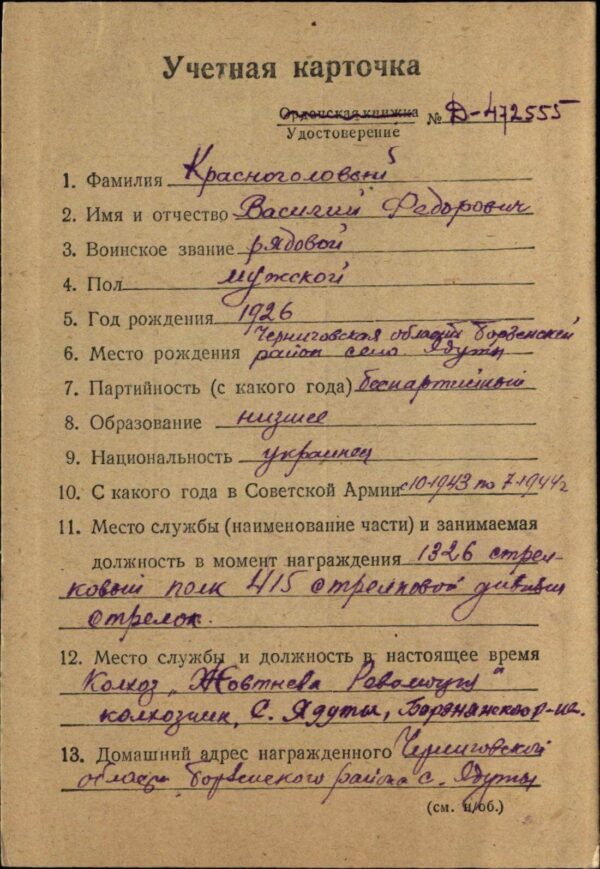 Учетная карточка
Орденская книжка
Удостоверение № Д-472555
1. Фамилия Красноголовый
2. Имя и отчество Василий Федорович
3. Воинское звание рядовой
4. Пол мужской
5. Год рождения 1926
Черниговская область Борзенский
6. Место рождения район село Ядуты
7. Партийность (с какого года) беспартийный
8. Образование низшее
9. Национальность украинец
10. С какого года в Советской Армии с 10-1943 по 7-1944г
11. Место службы (наименование части) и занимаемая
должность в момент награждения 1326 стрел-
ковый полк 415 стрелковой дивизии
стрелок.
12. Место службы и должность в настоящее время
Колхоз „Жовтнева Революция"
колхозник, С. Ядуты, р-на.
13. Домашний адрес награжденного Черниговской
области Борзенского района с. Ядуты
(см. н/об.)